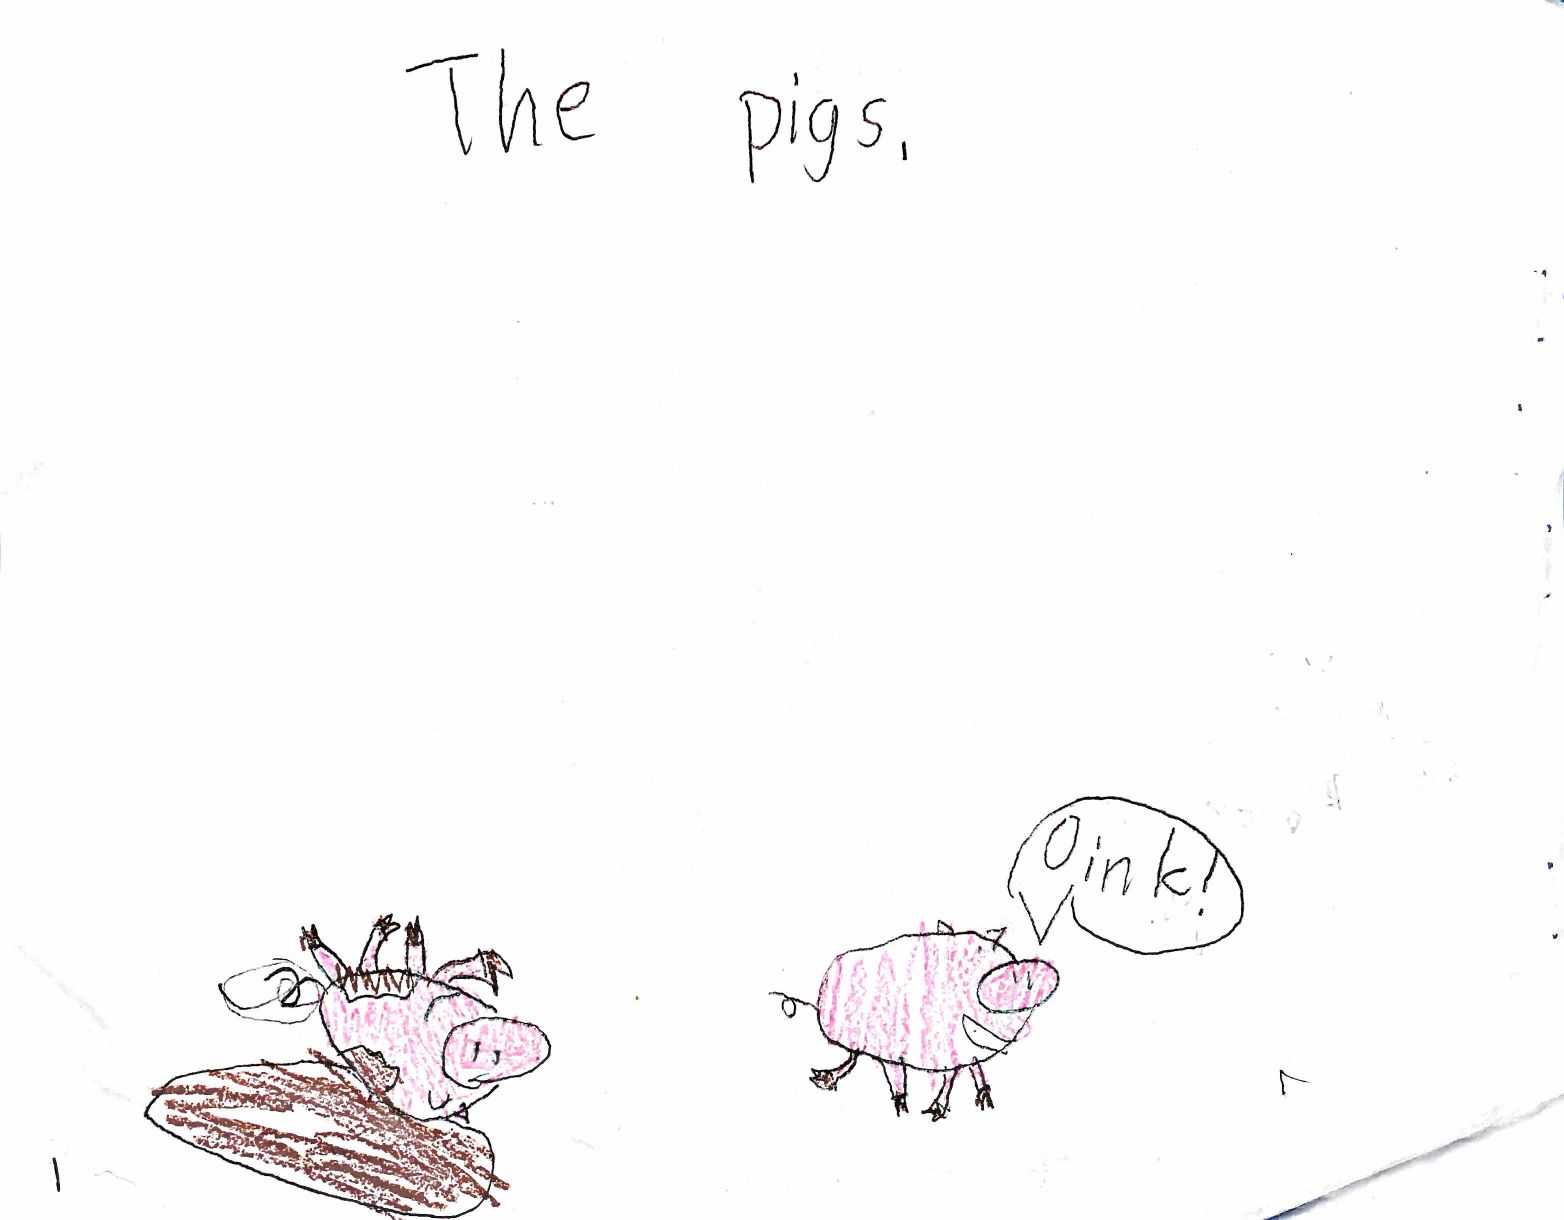 The pigs.
Oink!
1